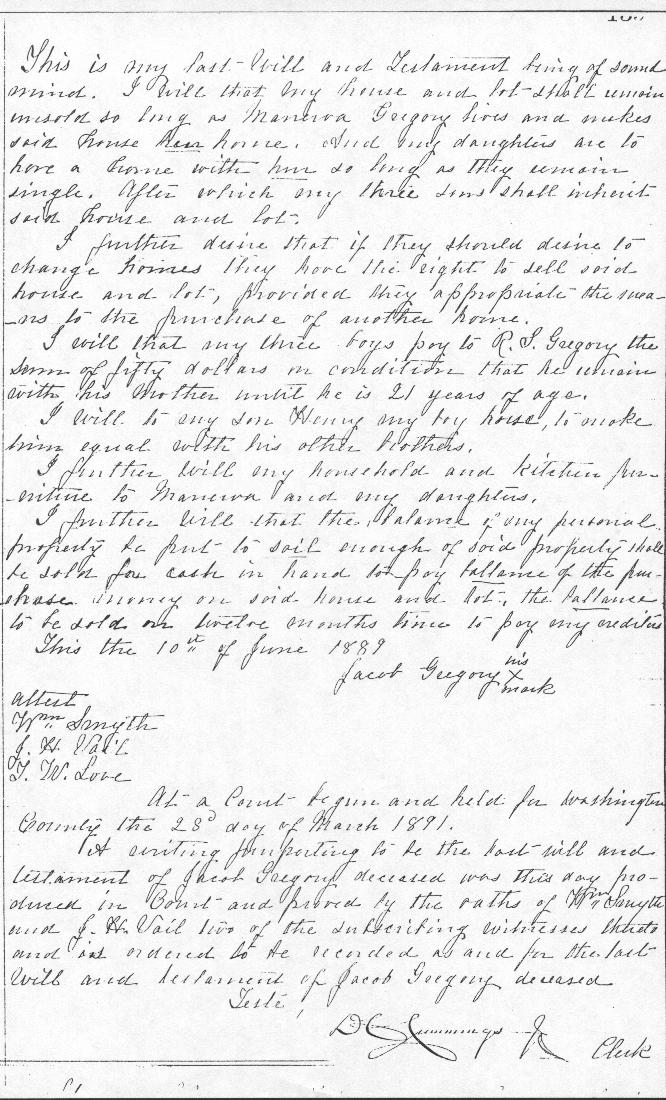 This is my last Will and Testament being of sound
mind. I Will that my house and lot shall remain
unsold so long as Manerva Gregory lives and makes
said house her home. And my daughters are to
have a home with him so long as they remain
single. After which my three sons shall inherit
said house and lot.
I further desire that if they should desire to
change homes they have the right to sell said
house and lot, provided they appropriate the mea-
-ns to the purchase of another home.
I will that my three boys pay to R. S. Gregory the
sum of fifty dollars on condition that he remain
with his Mother until he is 21 years of age.
I Will to my son Henry my boy horse, to make
him equal with his other brothers.
I further Will my household and kitchen fur-
-niture to Manerva and my daughters.
I further Will that the balance of my personal
property be put to sail enough of said property shall
be sold for cash in hand to pay ballance of the pur-
chase money on said house and lot, the ballance
to be sold on twelve months time to pay my creditors
This the 10th of June 1889
Jacob Gregory his X mark
attest
Wm Smyth
J. H. Vail
T. W. Love
At a Court begun and held for Washington
County the 23d day of March 1891.
A writing purporting to be the last will and
testament of Jacob Gregory deceased was this day pro-
duced in Court and proved by the oaths of Wm Smyth
and J. H. Vail two of the subscribing witnesses thereto
and is ordered to be recorded as and for the last
Will and testament of Jacob Gregory deceased
Teste,
D C Cummings Jr Clerk